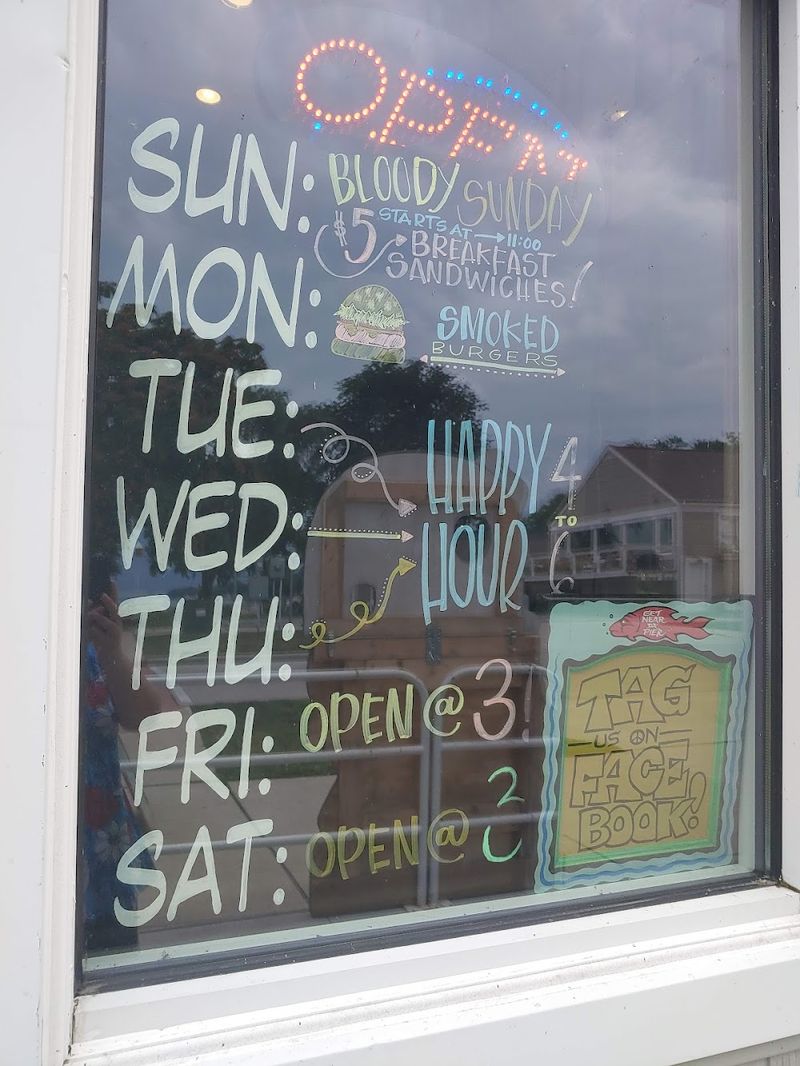 OPEN
SUN: BLOODY SUNDAY
STARTS AT → 11:00
$5 BREAKFAST
SANDWICHES!
MON: SMOKED
BURGERS
TUE:
WED:
THU:
HAPPY
HOUR
4
TO
6
FRI: OPEN @ 3!
SAT: OPEN @
GET
NEAR
DA
PIER
TAG
US ON
FACE
BOOK!